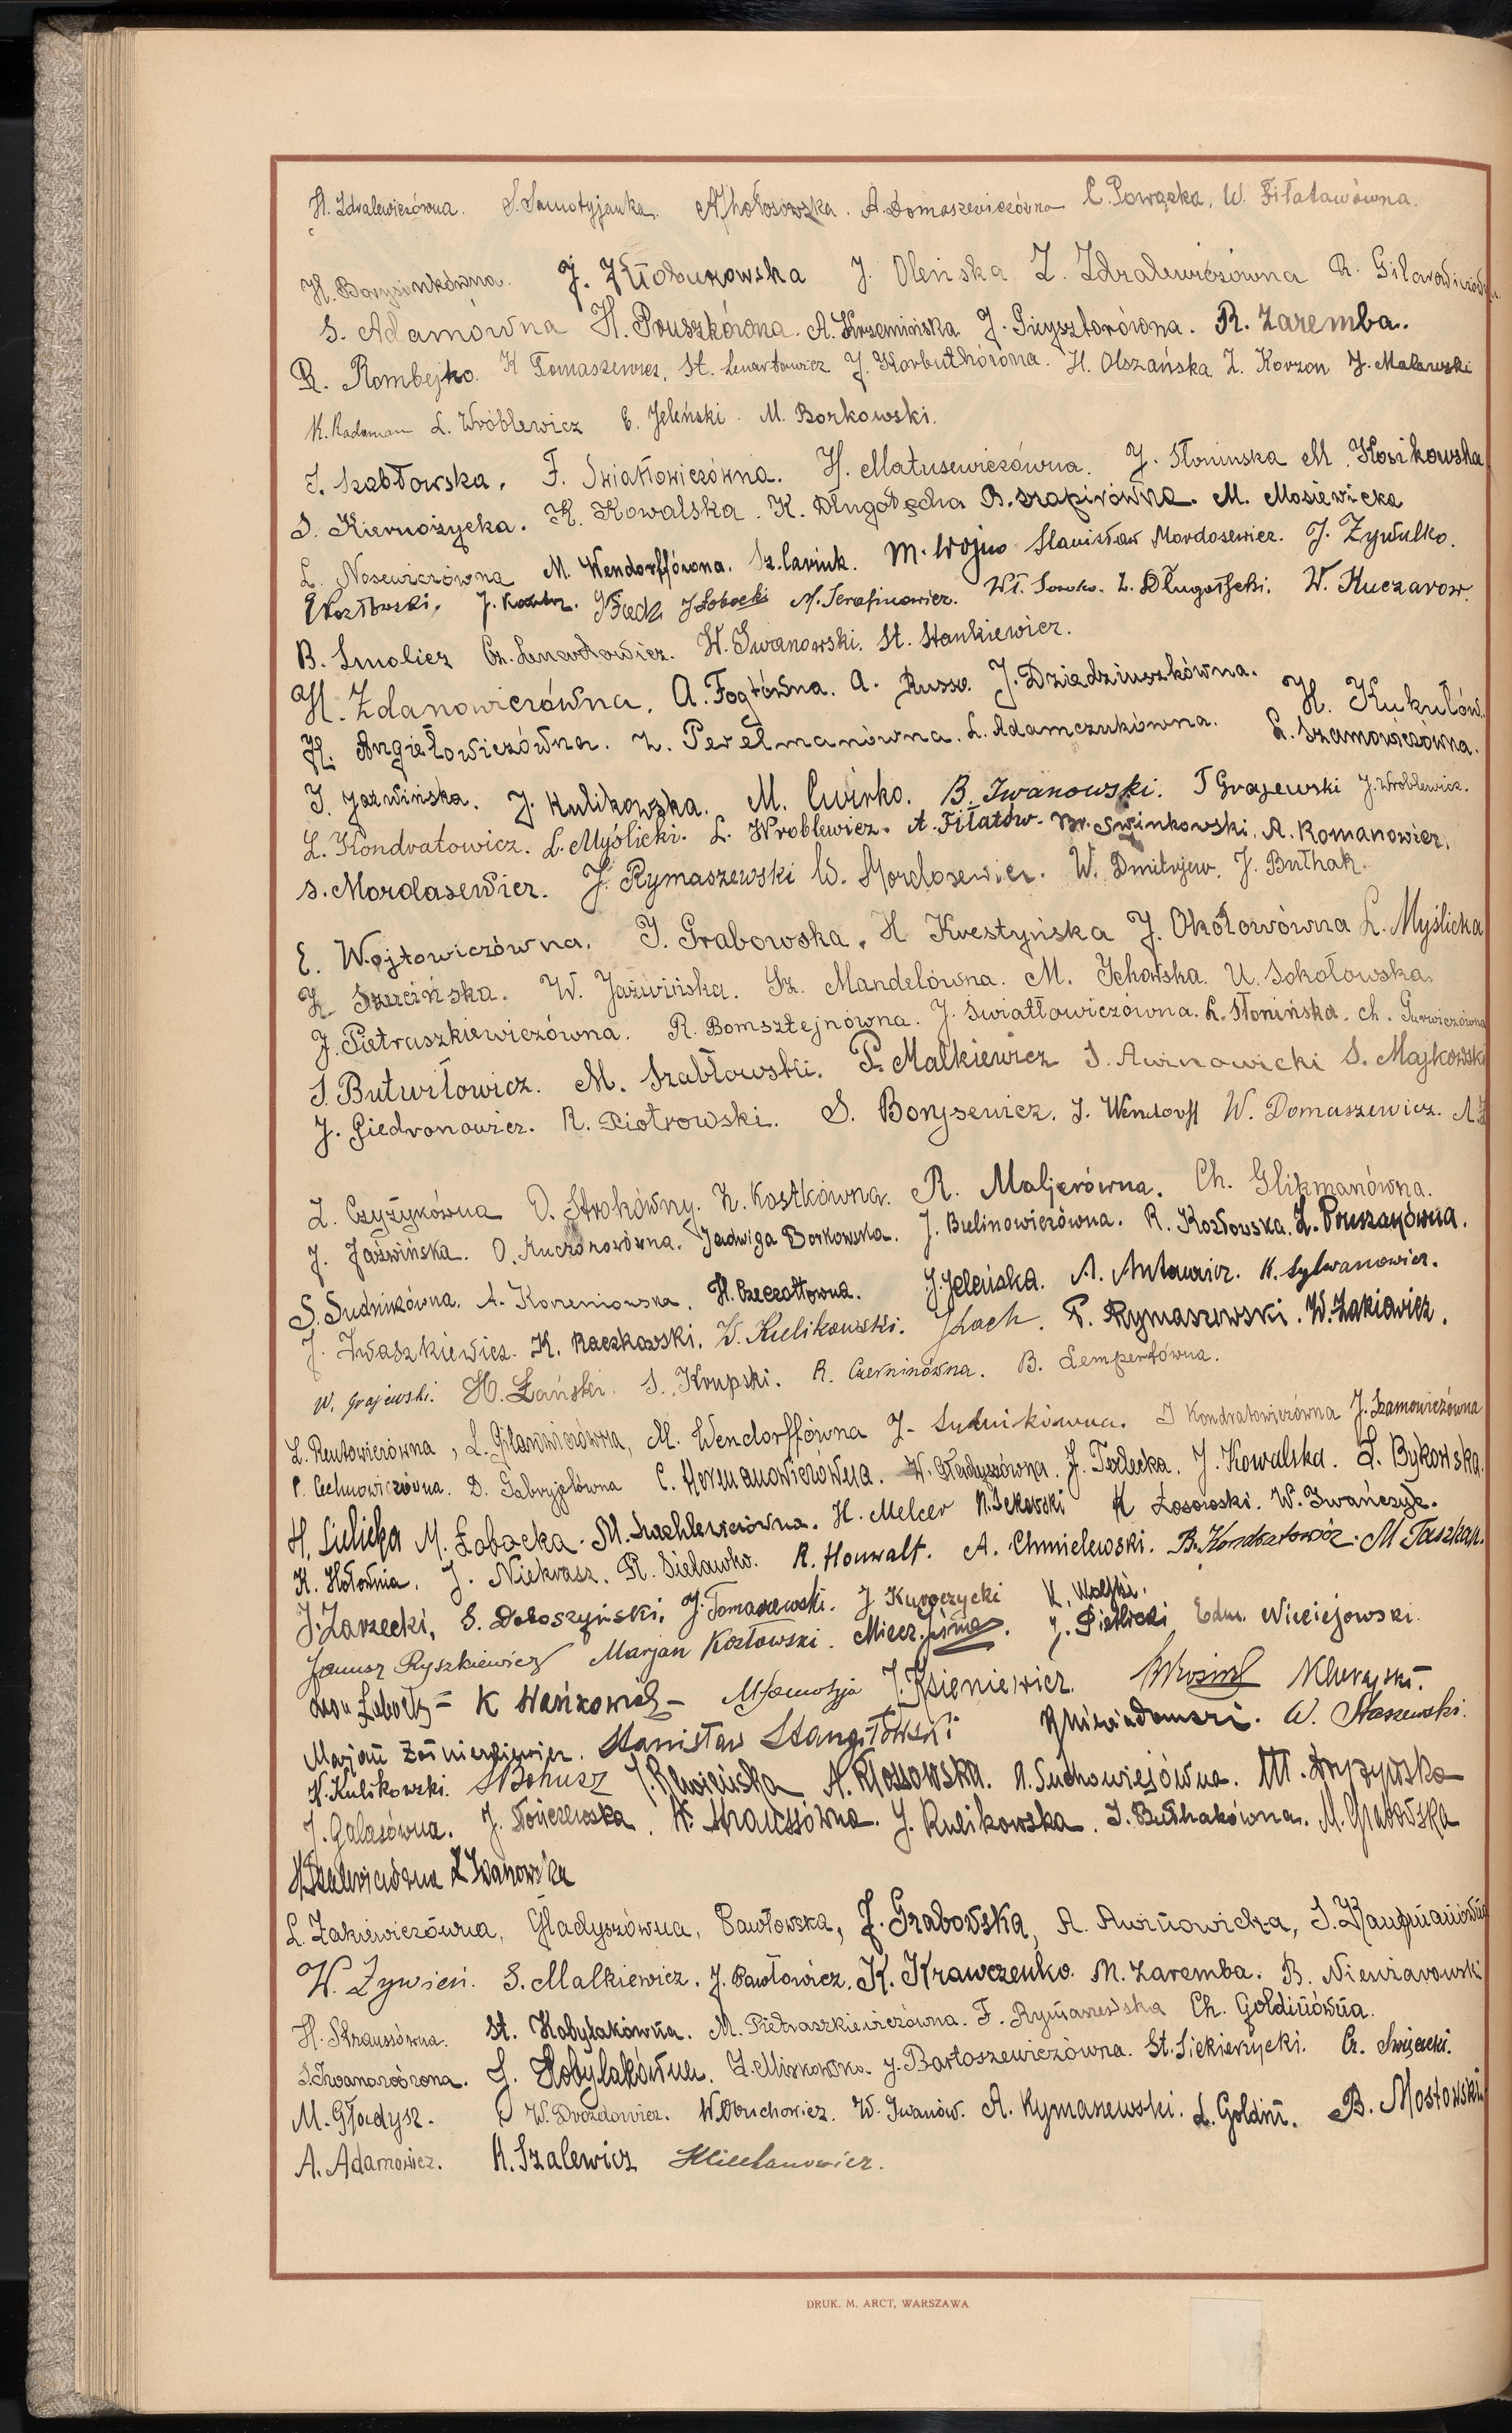 H. Zdralewiczówna. S. Samotyjanka. A. Chołosowska. A. Domaszewiczówna C. Powązka, W. Fiłatawówna.
H. Borysionkówna. J. Kłobukowska J. Oleńska Z. Zdralewiczówna R.
S. Adamówna H. Pruszkówna. A. Krzemińska J. Pieysztorówna. R. Zaremba.
R. Rombejko. K Tomaszewicz, St. Lenartowicz J. Korbuthówna. H. Olszańska. Z. Korzon J. Malawski
K. Radaman L. Wróblewicz E. Jeleński. M. Borkowski.
I. Szabłowska, F. Świałłowiczówna. H. Matusewiczówna. J. Słonimska M. Kosikowska
S. Kiernożycka. K. Kowalska. K. Długołęcka B. Szapirówna. M. Mosiewicka
L. Nosewiczówna M. Wendorffówna. Sz. M. Wojno Stanisław Mordasewicz. J. Żywułko.
Kozłowski, J. J Łobocki M. Serafinowicz. Wł. L. Długołęcki. W. Kuczarow.
B. Smolicz Cz. Lenartowicz. W. Iwanowski. St. Stankiewicz.
H. Zdanowiczówna, A. Fogtówna. A. Russo. J. Dziedziuszkówna. H. Kukułów.
H. Angiełowiczówna. Z. Perelmanówna. L. Adamczukówna. L. Szamowiczówna.
I. Jaźwińska. J. Kulikowska. M. Ćwirko. B. Iwanowski. T Grajewski J. Wróblewicz.
L. Kondratowicz. L. Myślicki. L. Wróblewicz. A. Fiłatów. Br. Świnkowski. A. Romanowicz.
S. Mordasewicz. J. Rymaszewski W. Mordosewicz. W. Dmitrjew. J. Bułhak.
E. Wojtowiczówna. I. Grabowska. H Krestyńska J. Okołowówna L. Myślicka
Z. Szucińska. W. Jaźwińska. Sz. Mandelówna. M. Ichalska. U. Sokołowska
J. Pietraszkiewiczówna. R. Bomsztejnówna. J. Światłowiczówna. L. Słonińska. Ch. Gurwiczówna
I. Butwiłowicz. M. Szabłowski. P. Malkiewicz I. Awinowicki S. Majkowski
J. Giedronowicz. R. Piotrowski. S. Borysewicz. J. Wendorff W. Domaszewicz.
Z. Czyżykówna O. Strokówny. Z. Kostkówna. R. Maljerówna. Ch. Glikmanówna.
J. Jaźwińska. O. Kuczarowówna. Jadwiga Borkowska. J. Bulinowiczówna. R. Kozłowska. Z. Pruszanówna.
S. Sudnikówna. A. Korzeniowska. H. Czeczottówna. J. Jeleńska. A. Antowicz. K. Sylwanowicz.
J. Iwaszkiewicz. K. Raczkowski. W. Kulikowski. J Łoch. P. Rymaszewski. W. Żakiewicz.
W. Grajewski. H. Łański. S. Krupski. R. Czerninówna. B. Lempertówna.
L. Reutowiczówna, L. Gilarowiczówna, M. Wendorffówna J. Sudnikówna. I Kondratowiczówna J. Szamowiczówna
P. Cechnowiczówna. D. Gabryjelówna C. Hermanowiczówna. W. Gładyszówna. J. Tolecka. J. Kowalska. L. Bykowska.
H. Sielicka M. Łobocka. M. Machlewiczówna. H. Melcer N. Sekowski K Łosowski. W. Iwańczyk.
K. Hołownia. J. Niekrasz. R. Sielawko. R. Houwalt. A. Chmielewski. B. Kondratowicz. M Taszkan.
J. Zarzecki, S. Doboszyński, J. Tomaszewski. J Kuroczycki K. Wolski.
Janusz Ryszkiewicz Marjan Kozłowski. Miecz. Sima. J. Piotrowski Edm. Wiciejowski.
K Wańkowicz M Samotyja J. Ksieniewicz.
Marjan Żołnierkiewicz. Stanisław Stangiłłowski R Niewiadomski. W. Staszewski.
W. Kulikowski. S Bohusz A. Kłossowska. A. Suchowiejówna.
J. Galasówna. J. Tołłoczko. W. Straussówna. J. Kulikowska. I. Bułhakówna. M. Grabowska
Szalewiczówna Z Iwanowska
L. Żakiewiczówna, Gładyszówna, Pawłowska, J. Grabowska, A. Awinowicka, I. Kaufmanówna
W. Żywień. S. Malkiewicz. J. Pawłowicz. K. Krawczenko. M. Zaremba. B. Niewiarowski
H. Straussówna. St. Kobylakówna. M. Pietraszkiewiczówna. F. Rymaszewska Ch. Goldinówna.
I. Iwanowówna. G. Kobylakówna. Z. Miskowska. J. Bartoszewiczówna. St. Siekierzycki. Cz. Święcicki.
M. Gładysz. W. Drozdowicz. W. Obuchowicz. W. Iwanów. A. Rymaszewski. L. Goldin. B. Mostowski
A. Adamowicz. K. Szalewicz
DRUK. M. ARCT, WARSZAWA